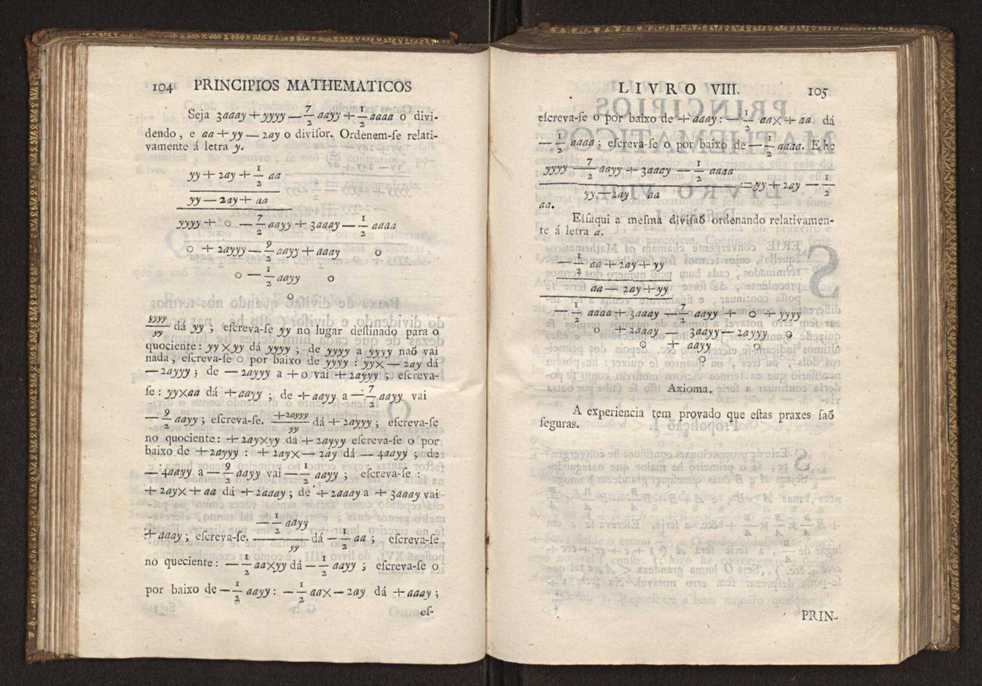 104 PRINCIPIOS MATHEMATICOS
Seja 3aaay + yyyy — 7/2 aayy + 1/2 aaaa o divi-
dendo, e aa + yy — 2ay o divisor. Ordenem-ſe relati-
vamente á letra y.
yy + 2ay + 1/2 aa
yy — 2ay + aa
yyyy + 0 — 7/2 aayy + 3aaay — 1/2 aaaa
0 + 2ayyy — 9/2 aayy + aaay 0
0 — 1/2 aayy 0
0
yyyy/yy dá yy ; eſcreva-ſe yy no lugar deſtinado para o
quociente: yy × yy dá yyyy ; de yyyy a yyyy naõ vai
nada, eſcreva-ſe 0 por baixo de yyyy : yy × — 2ay dá
— 2ayyy ; de — 2ayyy a + 0 vai + 2ayyy ; eſcreva-
ſe : yy×aa dá + aayy ; de + aayy a — 7/2 aayy vai
— 9/2 aayy ; eſcreva-ſe. +2ayyy/yy dá + 2ayyy ; eſcreva-ſe
no quociente: + 2ay×yy dá + 2ayyy eſcreva-ſe o por
baixo de + 2ayyy : + 2ay × — 2ay dá — 4aayy ; de
— 4aayy a — 9/2 aayy vai — 1/2 aayy ; eſcreva-ſe :
+ 2ay × + aa dá + 2aaay ; de + 2aaay a + 3aaay vai
+ aaay ; eſcreva-ſe. — 1/2 aayy/yy dá — 1/2 aa ; eſcreva-ſe
no queciente: — 1/2 aa×yy dá — 1/2 aayy ; eſcreva-ſe o
por baixo de — 1/2 aayy : — 1/2 aa × — 2ay dá + aaay ;
eſ-
LIVRO VIII. 105
eſcreva-ſe o por baixo de + aaay : — 1/2 aa × + aa dá
— 1/2 aaaa ; eſcreva-ſe o por baixo de — 1/2 aaaa. E he
yyyy — 7/2 aayy + 3aaay — 1/2 aaaa / yy — 2ay aa = yy + 2ay — 1/2
aa.
Eiſaqui a meſma diviſaõ ordenando relativamen-
te á letra a.
— 1/2 aa + 2ay + yy
aa — 2ay + yy
— 1/2 aaaa + 3aaay — 7/2 aayy + 0 + yyyy
0 + 2aaay — 3aayy — 2ayyy 0
0 + aayy 0
0
Axioma.
A experiencia tem provado que eſtas praxes ſaõ
ſeguras.
PRIN-